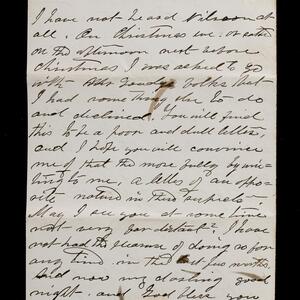 I have not heard Nilsson at
all. On Christmas eve. or rather
on the afternoon next before
Christmas I was asked to go
with folks but
I had something else to do
and declined. You will find
this to be a poor and dull letter,
and I hope you will convince
me of that the more fully by wri-
ting to me, a letter of an oppo-
site nature in these respects.
May I see you at some time
not very far distant? I have
not had the pleasure of doing so for
any time in the last few months.
And now my closing good
night. and God bless you